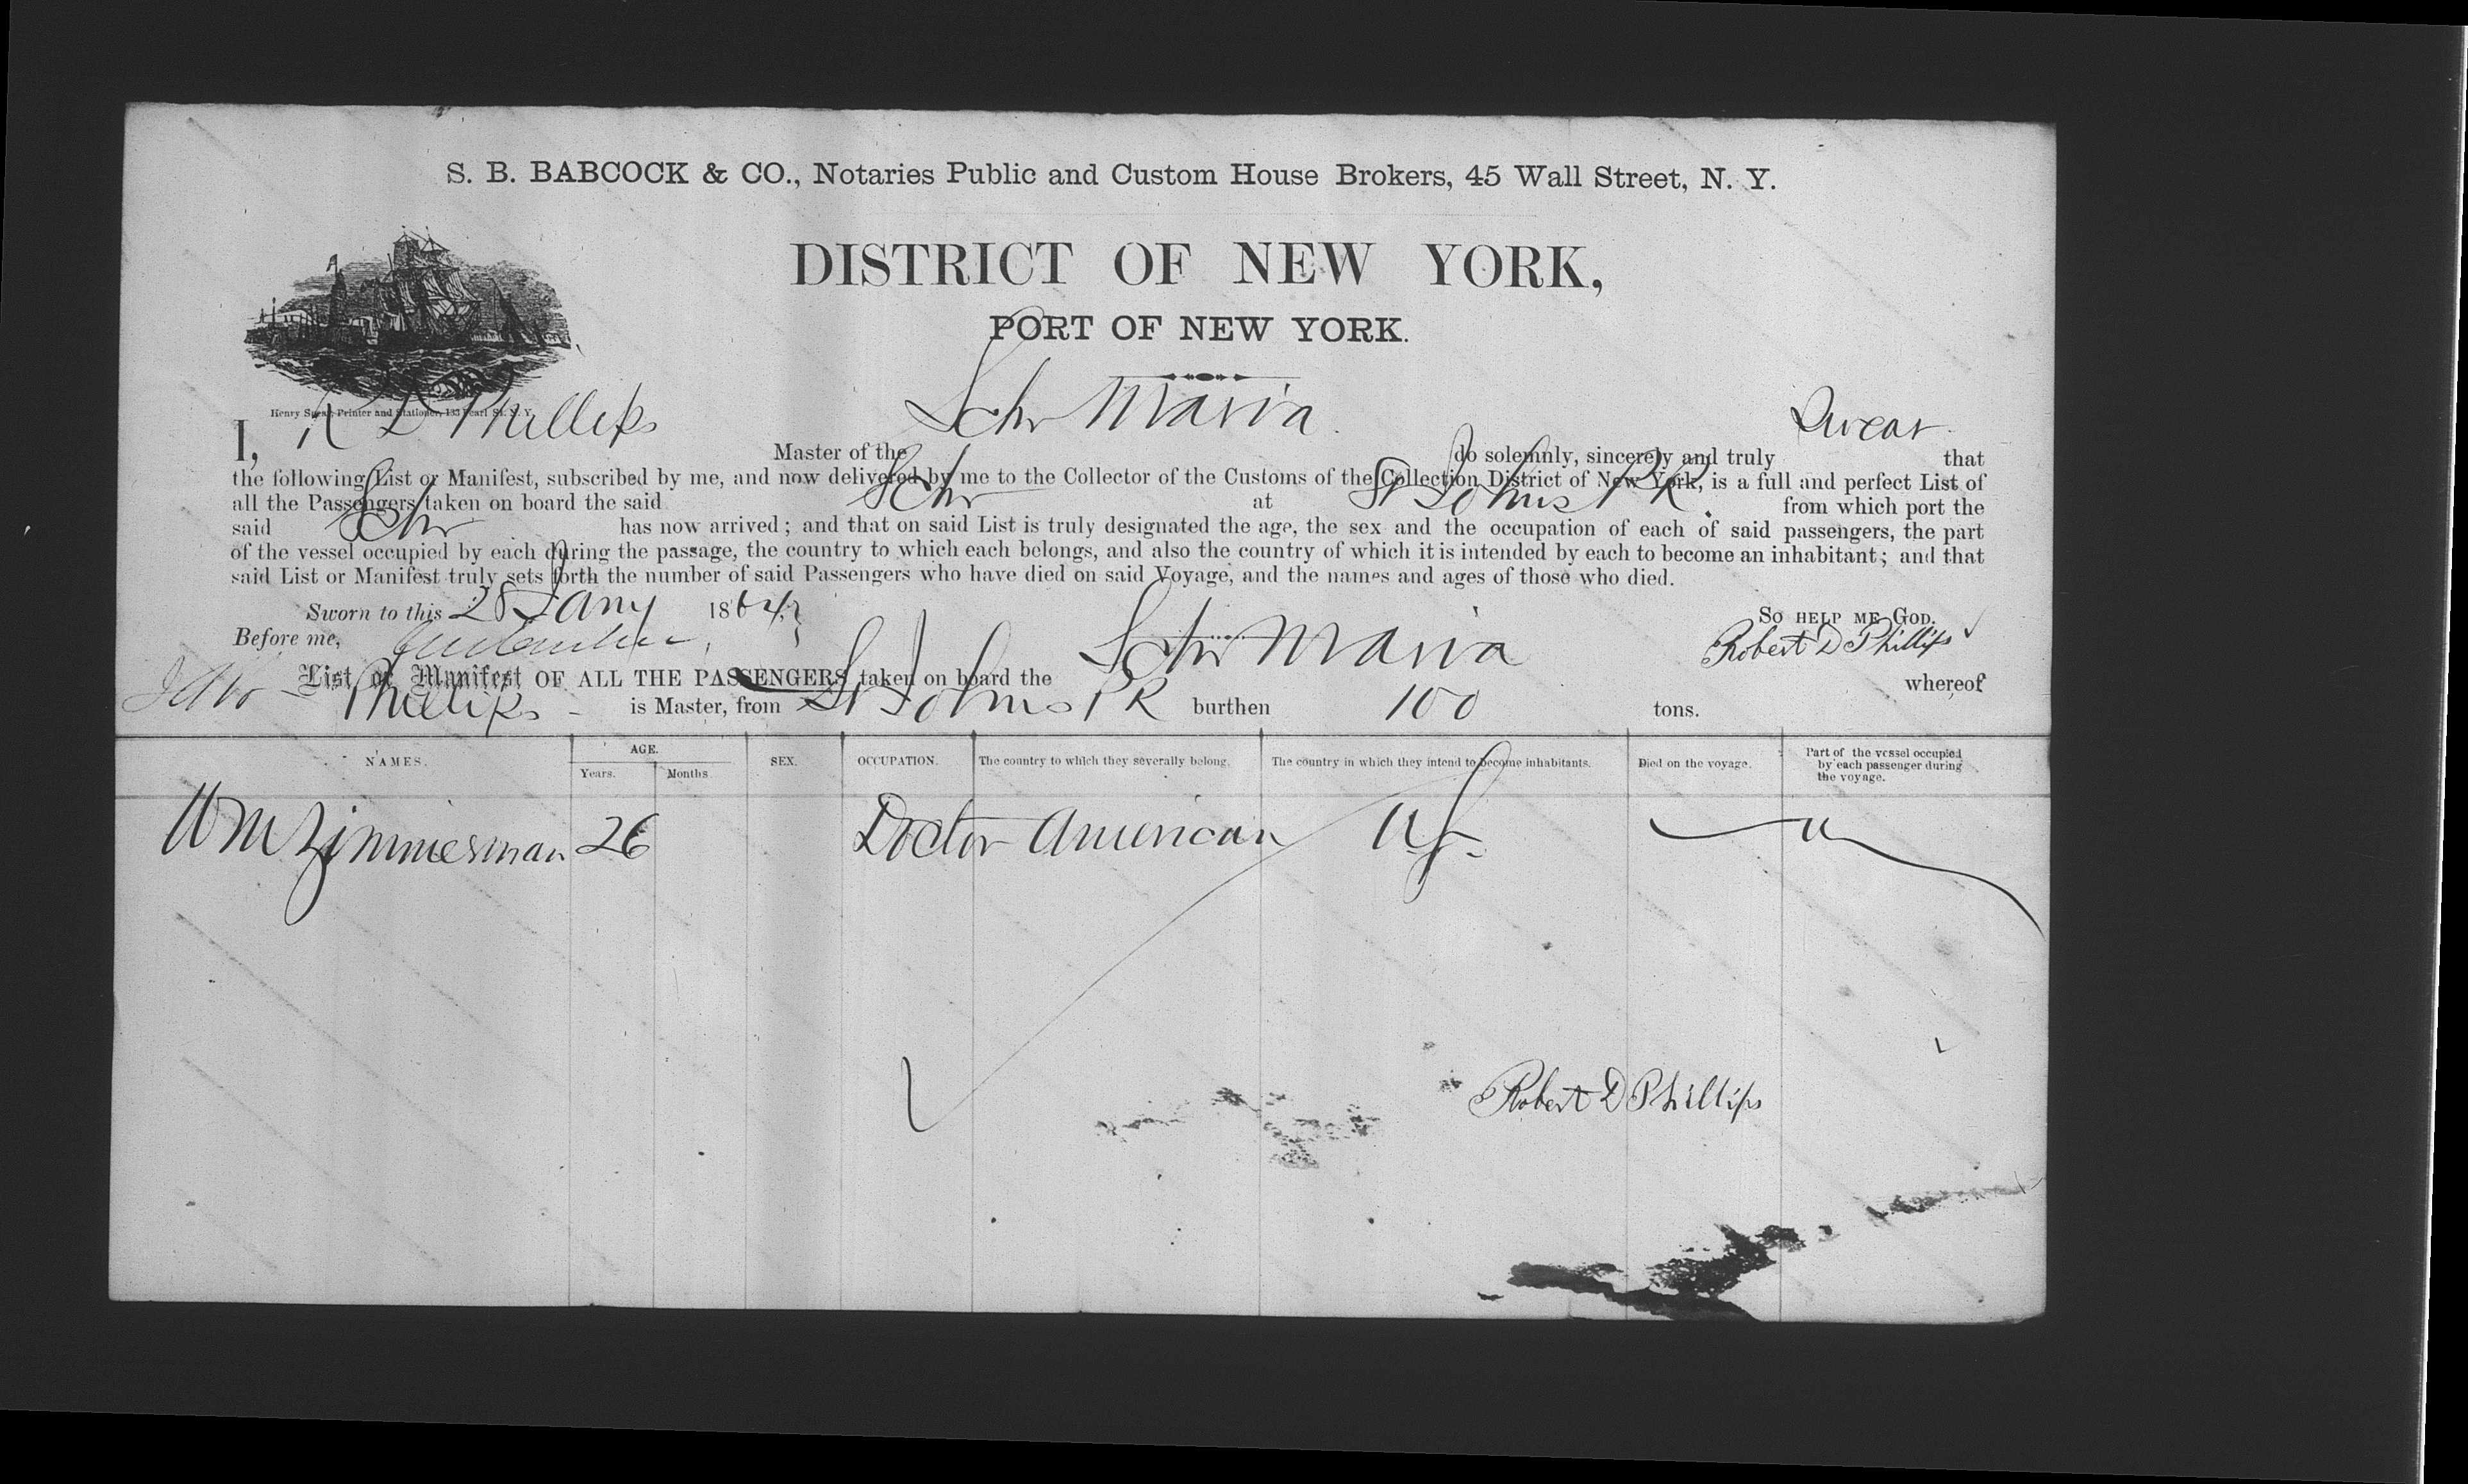 S. B. BABCOCK & CO., Notaries Public and Custom House Brokers, 45 Wall Street, N. Y.
DISTRICT OF NEW YORK,
PORT OF NEW YORK.
Henry Spear, Printer and Stationer, 133 Pearl St. N. Y.
I, R D Phillips Master of the Schr Maria do solemnly, sincerely and truly Swear that
the following List or Manifest, subscribed by me, and now delivered by me to the Collector of the Customs of the Collection District of New York, is a full and perfect List of
all the Passengers taken on board the said Schr at St Johns P R from which port the
said Schr has now arrived; and that on said List is truly designated the age, the sex and the occupation of each of said passengers, the part
of the vessel occupied by each during the passage, the country to which each belongs, and also the country of which it is intended by each to become an inhabitant; and that
said List or Manifest truly sets forth the number of said Passengers who have died on said Voyage, and the names and ages of those who died.
Sworn to this 28 Jany 1864 So HELP ME GOD.
Before me, Robert D Phillips
List or Manifest OF ALL THE PASSENGERS taken on board the Schr Maria whereof
Phillips is Master, from St Johns P R burthen 100 tons.
NAMES. AGE. Years. Months. SEX. OCCUPATION. The country to which they severally belong. The country in which they intend to become inhabitants. Died on the voyage. Part of the vessel occupied by each passenger during the voyage.
Wm Zimmerman 26 Doctor American U.S.
Robert D Phillips